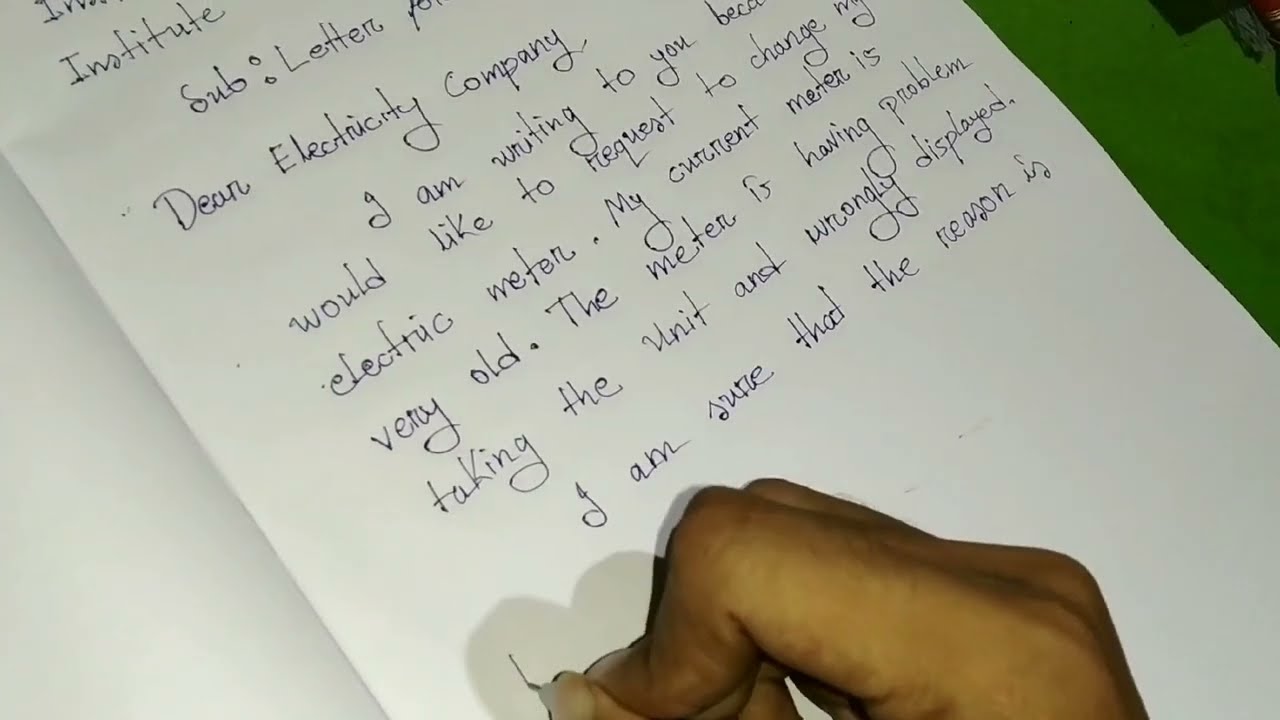 Institute
Sub: Letter
Dear Electricity Company,
I am writing to you
would like to request to change my
electric meter. My current meter is
very old. The meter is having problem
taking the unit and wrongly displayed.
I am sure that the reason is